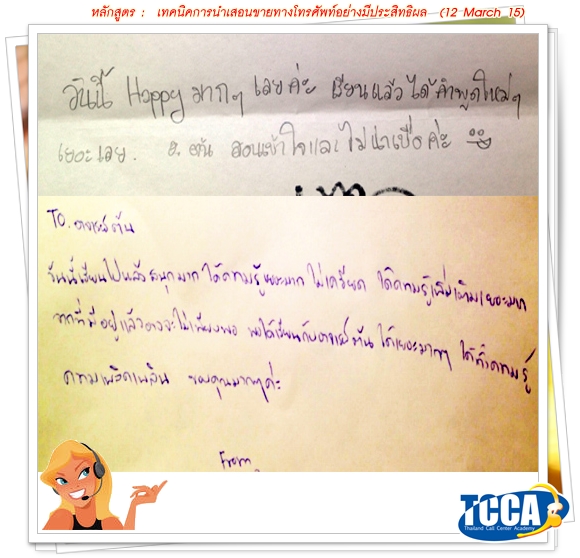 หลักสูตร : เทคนิคการนำเสนอขายทางโทรศัพท์อย่างมีประสิทธิผล (12 March 15)
วันนี้ Happy มากๆ เลยค่ะ เรียนแล้วได้คำพูดใหม่ๆ
เยอะเลย. อ. ต้น สอนเข้าใจและไม่น่าเบื่อค่ะ
TO. อาจารย์ต้น
วันนี้เรียนไปแล้วสนุกมาก ได้ความรู้เยอะมาก ไม่เครียด ได้ความรู้เพิ่มเติมเยอะมาก
จากที่มีอยู่แล้วอาจจะไม่เพียงพอ พอได้เรียนกับอาจารย์ต้น ได้เยอะมากๆ ได้ทั้งความรู้
ความเพลิดเพลิน ขอบคุณมากๆค่ะ
From
TCCA
Thailand Call Center Academy